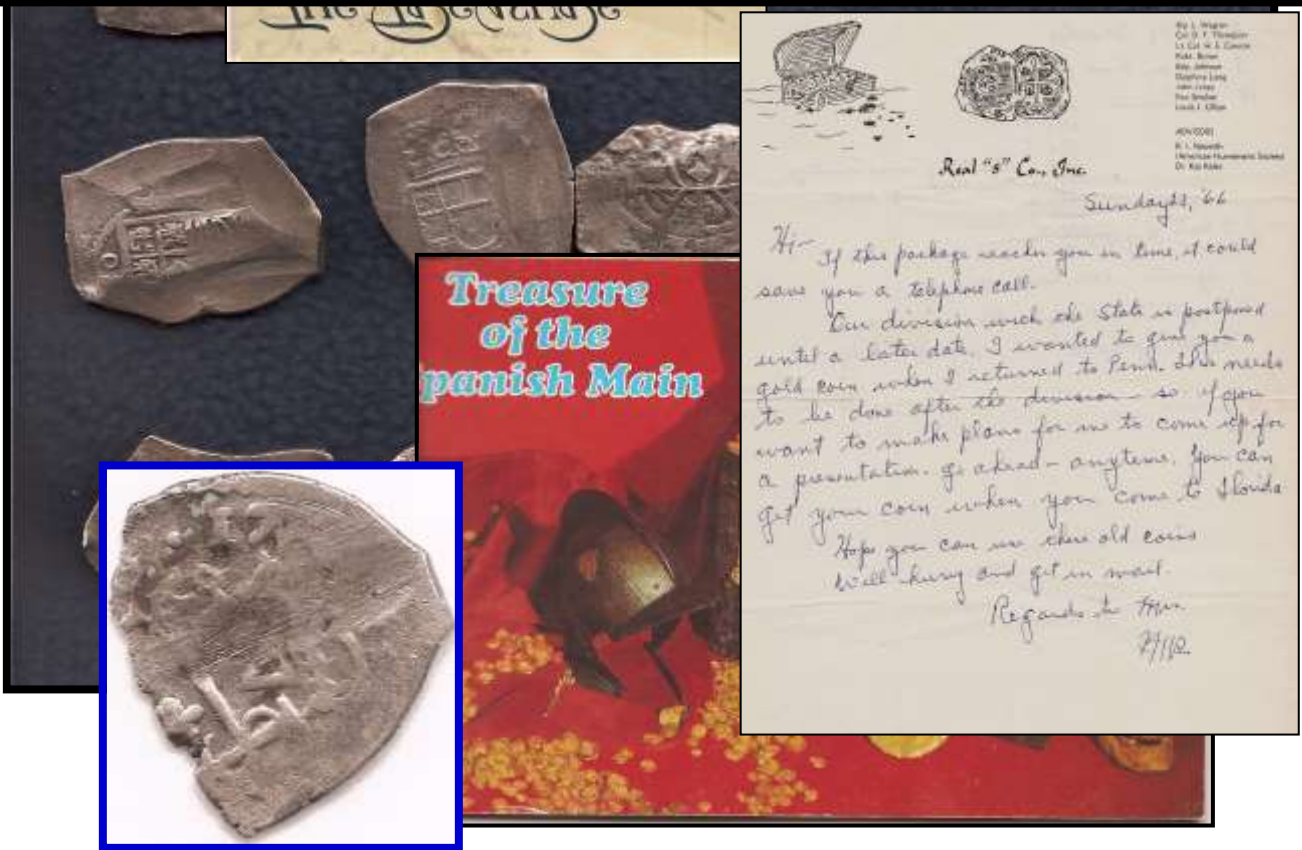 Treasure
of the
panish Main
Real "8" Co., Inc.
Kip L. Wagner
Col. D. F. Thompson
Lt. Col. H. E. Cannon
John Jones
Louis J. Ullian
ADVISORS
(American Numismatic Society)
Sunday , '66
Hi-
If this package reaches you in time, it could
save you a telephone call.
Our division with the State is postponed
until a later date. I wanted to give you a
gold coin when I returned to Penn. This needs
to be done after the division - so if you
want to make plans for me to come up for
a presentation. go ahead - anytime. You can
get your coin when you come to Florida
Hope you can use these old coins
Will hurry and get in mail.
Regards to Mrs.